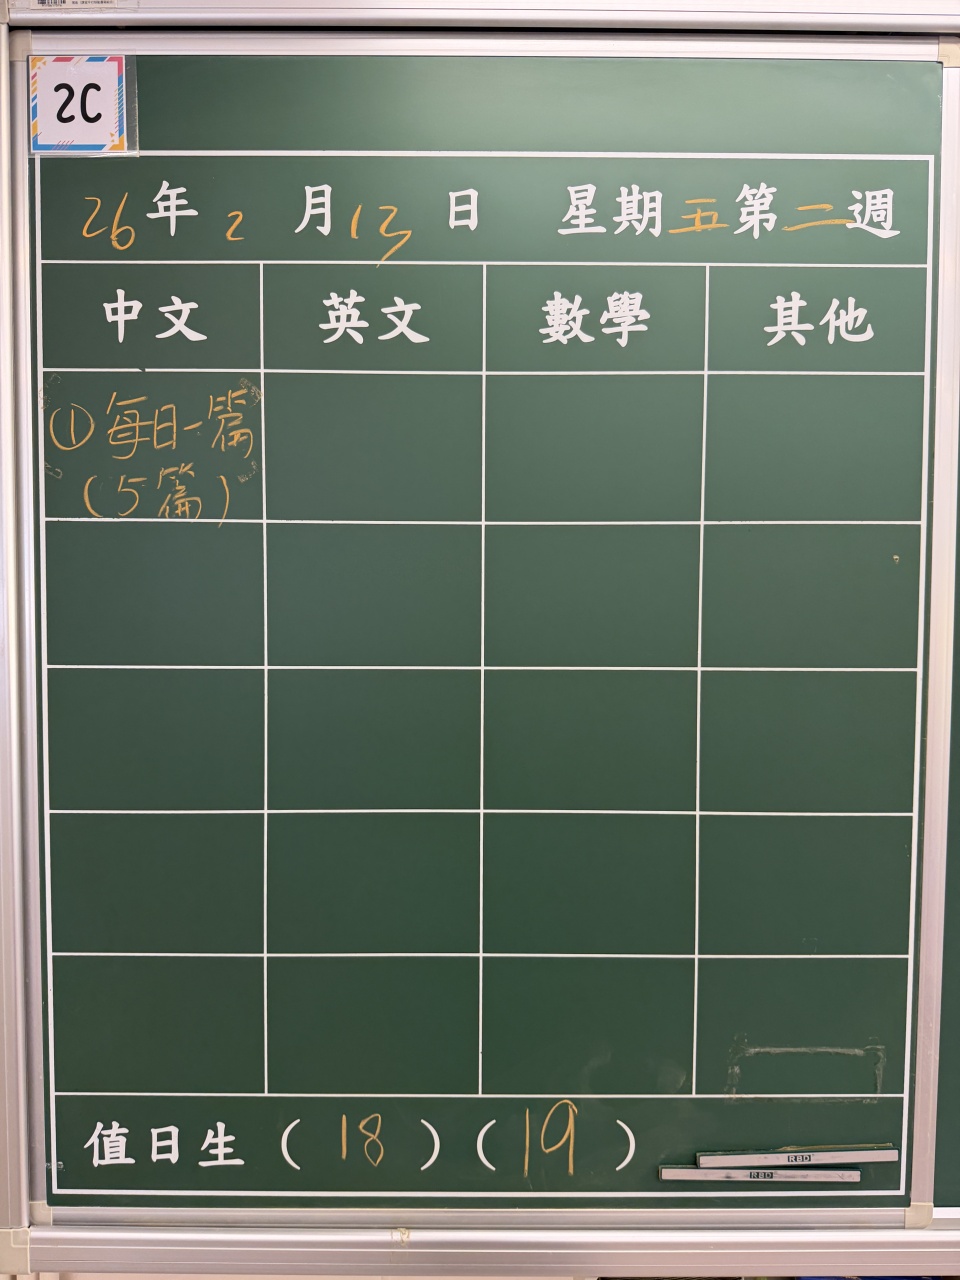 2C
26年 2 月13 日 星期五第二週
中文 英文 數學 其他
①每日一篇
(5篇)
值日生 ( 18 ) ( 19 )
RBD
RBD